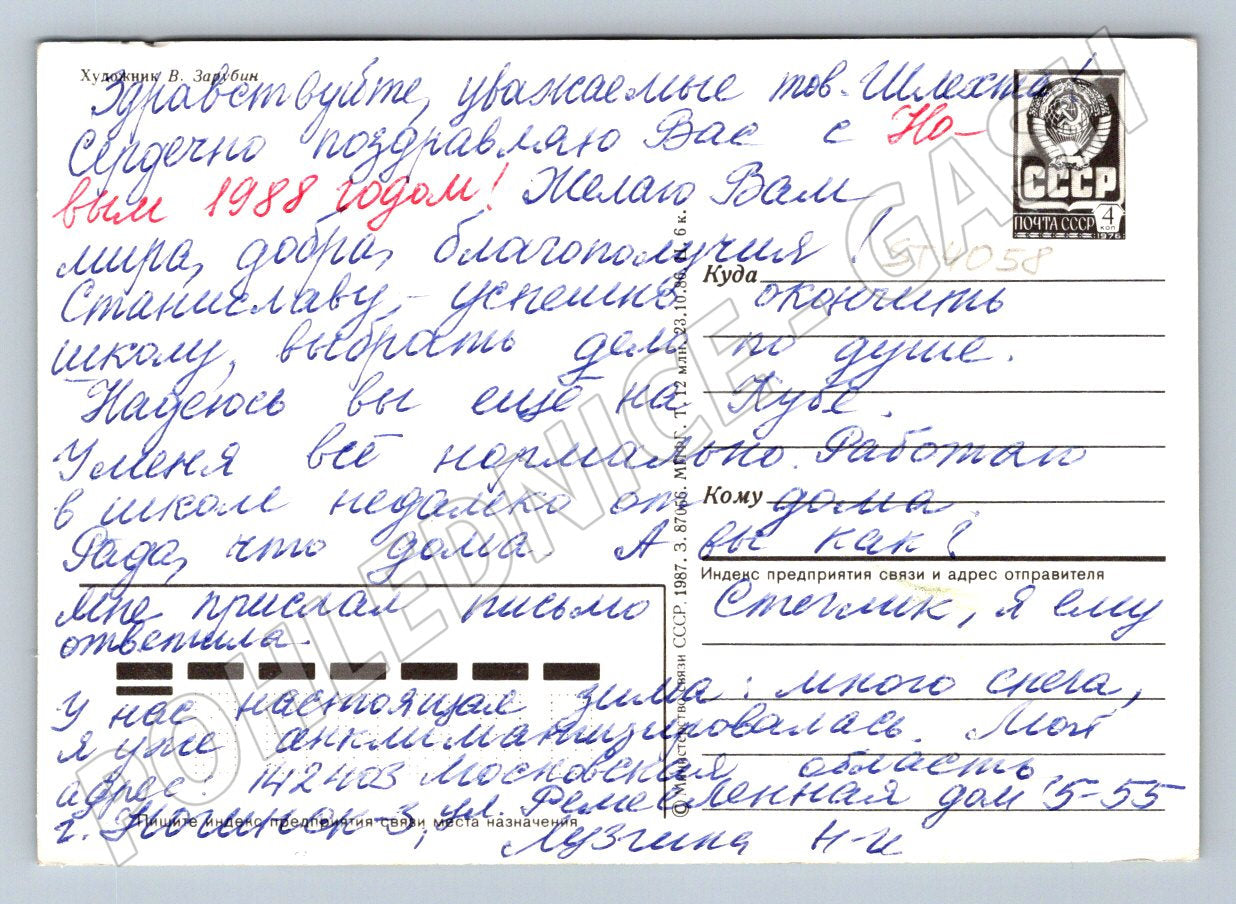 Художник В. Зарубин
Здравствуйте, уважаемые тов. Шлехта!
Сердечно поздравляю Вас с Но-
вым 1988 годом! Желаю Вам
мира, добра, благополучия!
Станиславу - успешно окончить
школу, выбрать дело по душе.
Надеюсь вы ещё на Кубе.
У меня всё нормально. Работаю
в школе недалеко от дома.
Рада, что дома. А вы как?
Мне прислал письмо Стеглик, я ему
ответила.
У нас настоящая зима: много снега,
я уже акклиматизировалась. Мой
адрес: 142403 Московская область
г. Ногинск-3, ул. Ремесленная дом 5-55
Лузгина Н-И
СССР
ПОЧТА СССР 4 коп
1976
ST4058
Куда
Кому
Индекс предприятия связи и адрес отправителя
Пишите индекс предприятия связи места назначения
© Министерство связи СССР. 1987. З. 87066. МПФГ. Т. 12 млн. 23.10.86. Ц. 6 к.
POHLEDNICE-GASH